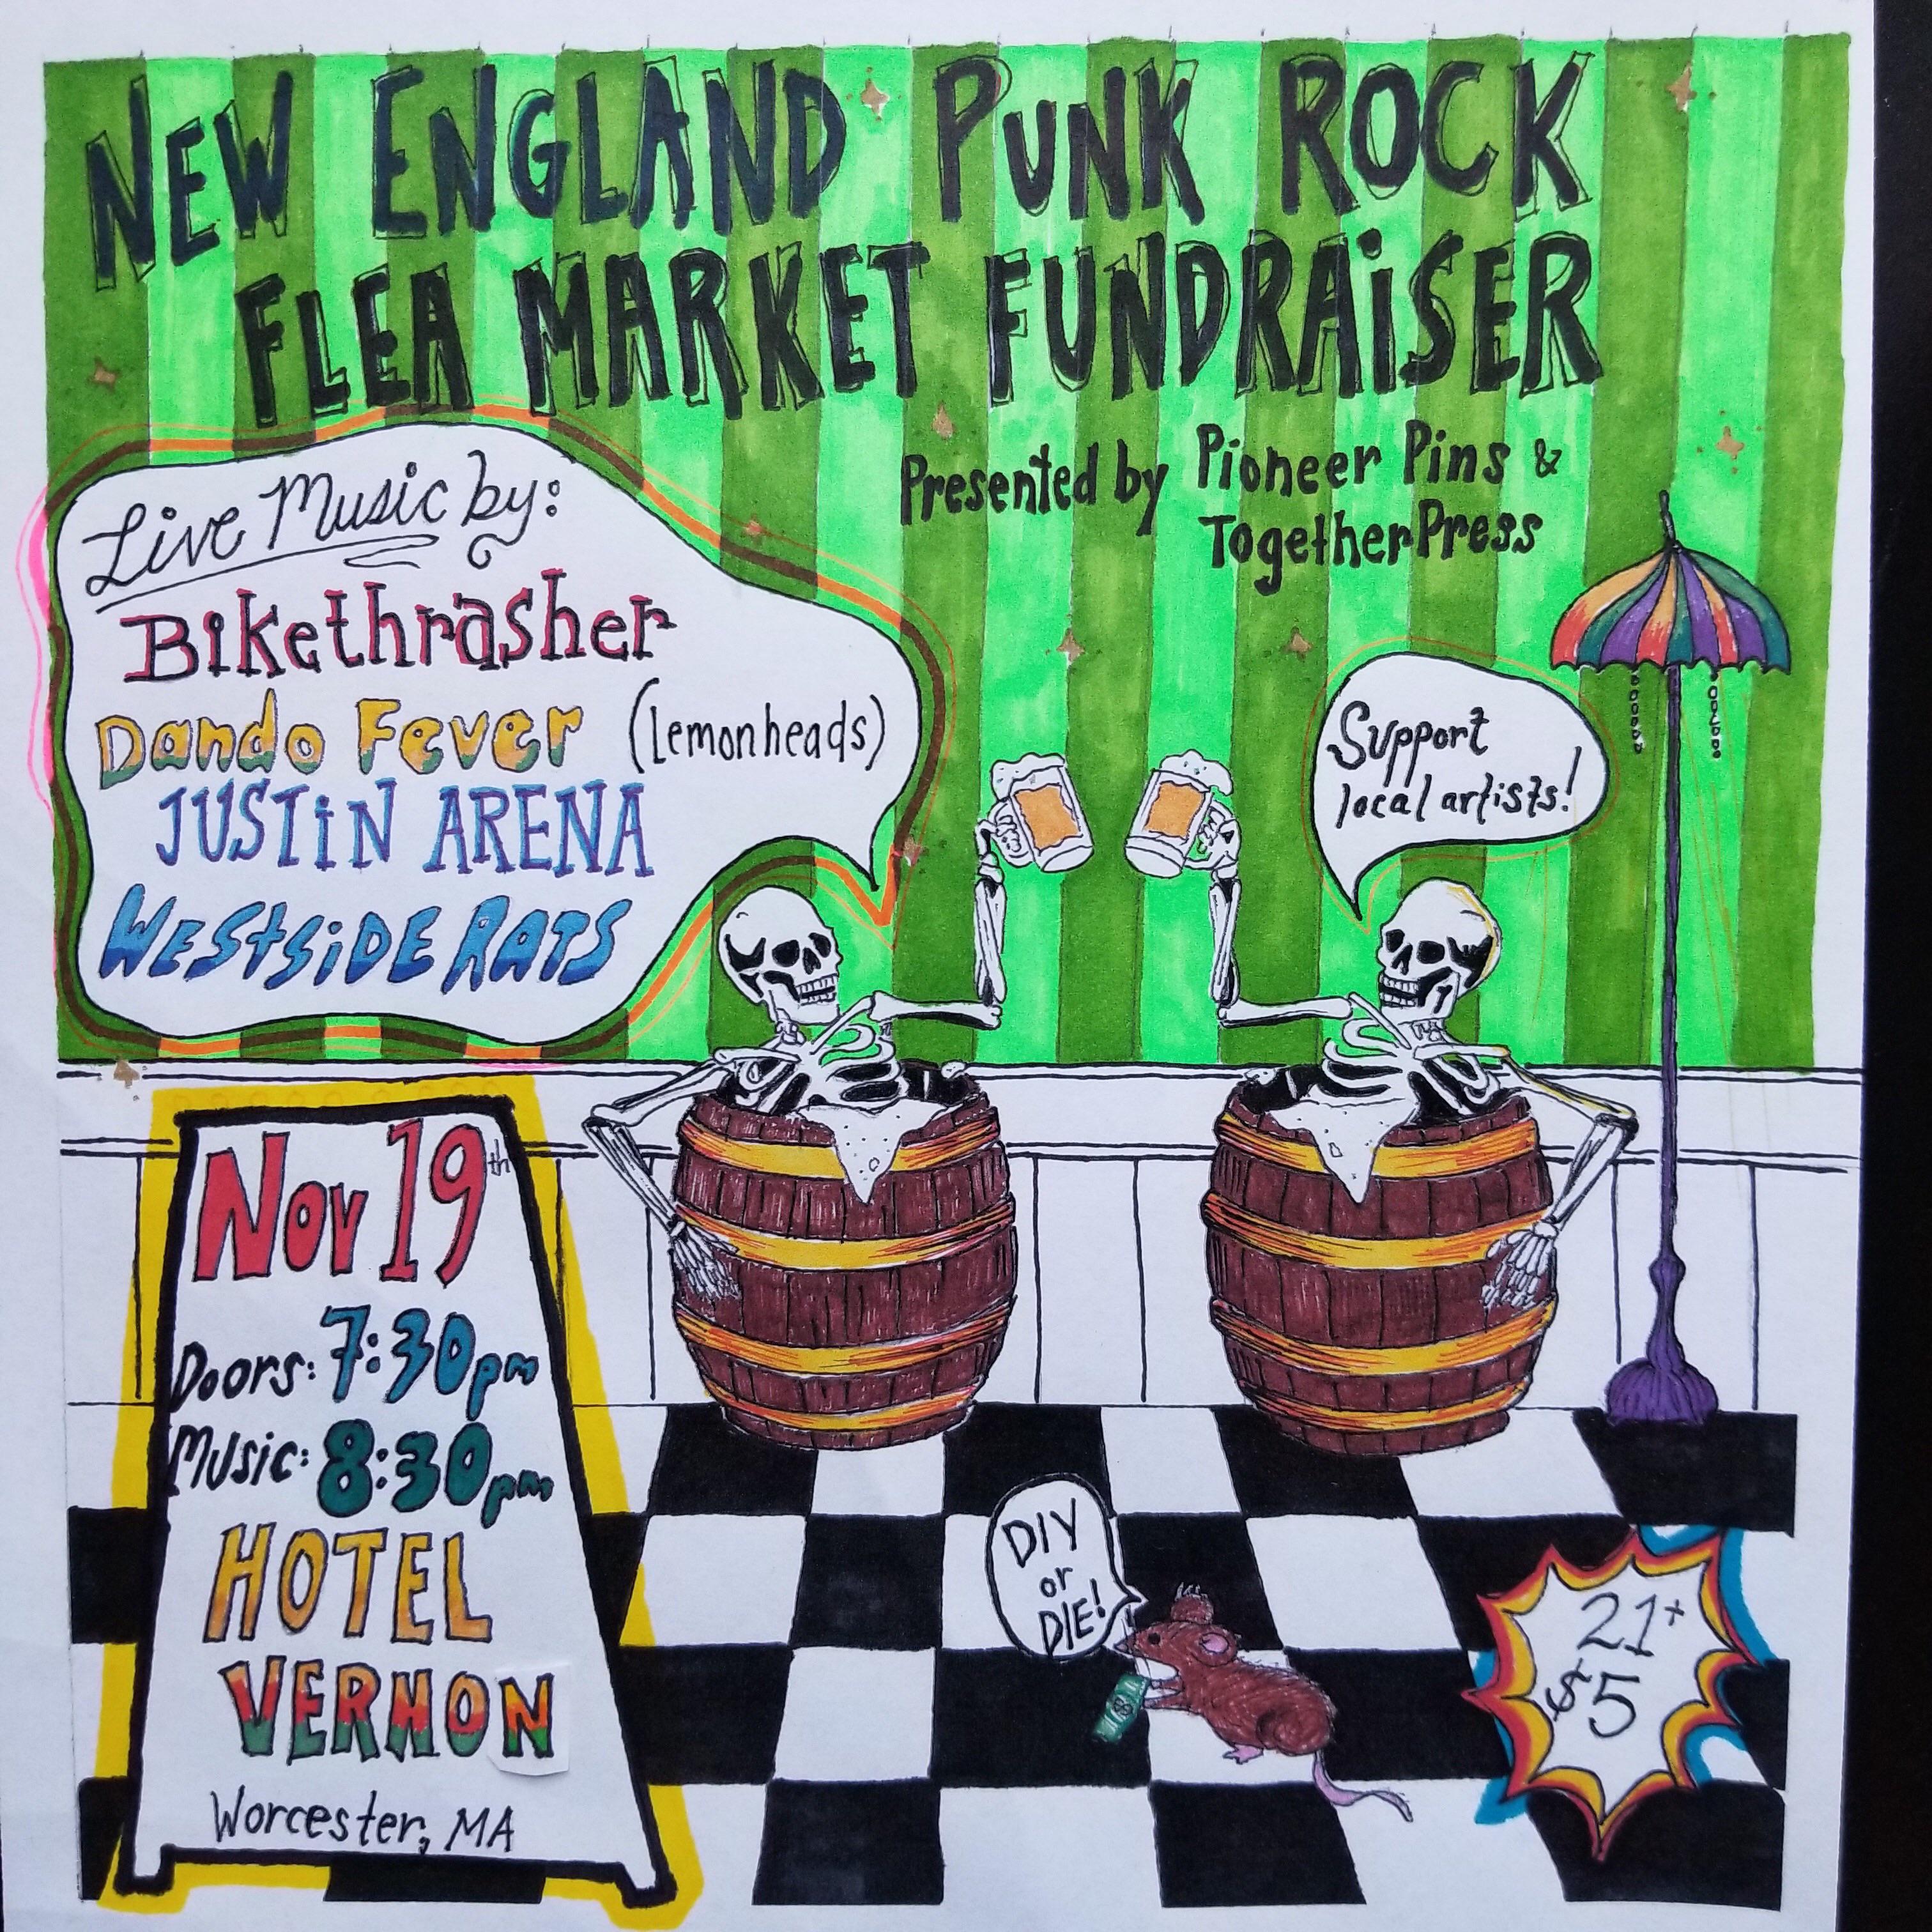 NEW ENGLAND PUNK ROCK
FLEA MARKET FUNDRAiSER
Presented by Pioneer Pins &
TogetherPress
Live Music by:
Bikethrasher
Dando Fever (Lemonheads)
JUSTiN ARENA
WEStSiDE RATS
Support
local artists!
Nov 19th
Doors: 7:30pm
Music: 8:30pm
HOTEL
VERNON
Worcester, MA
DIY
or
DIE!
$
21+
$5